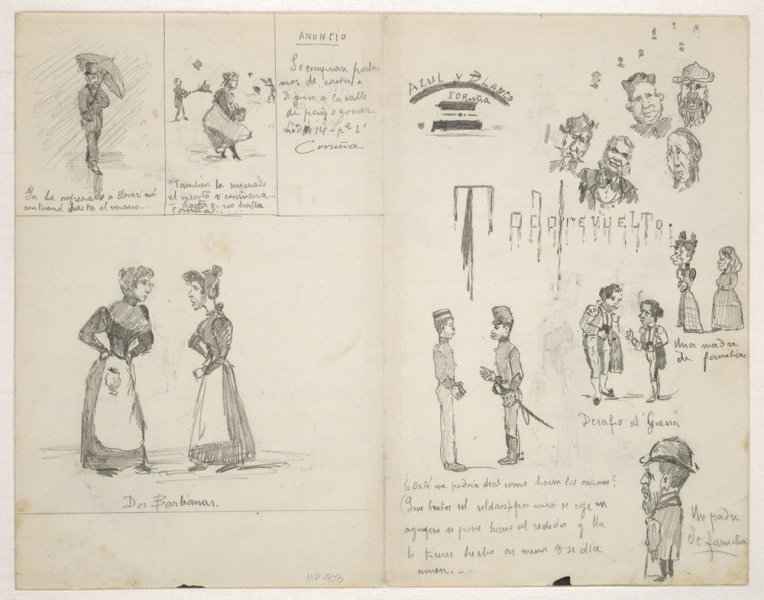 Ya ha empesado a llover
continuará hasta el verano...
Tambien ha empesado
el viento y continuará...
hasta q. no haya
Coruña......
ANUNCIO
Se compran palo-
mas de casta.
Dirigirse a la calle
de payo gomez
nº 14 - pº 2º
Coruña
Dos Barbianas.
MP 403
AZUL y BLANCO
CORUÑA
TODO REVUELTO
Una madre
de familia
Desafio al Guerra
¿Osté me podria decí como hacen los cañones?
(Que brutos sol soldaos) pos mira se coje un
agugero se pone hierro al rededor y lla
lo tienes hecho en menos q. se dice
amen. -
Un padre
de familia